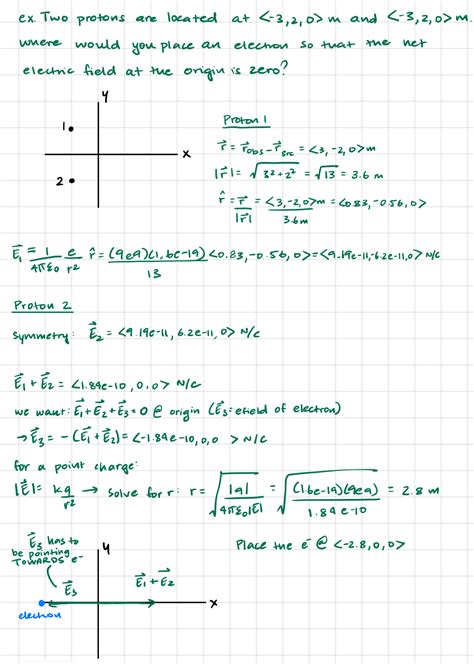 ex. Two protons are located at <-3,2,0> m and <-3,2,0> m.
where would you place an electron so that the net
electric field at the origin is zero?
y
1.
x
2
Proton 1
r⃗ = r⃗obs - r⃗src = <3,-2,0> m
|r⃗| = √(3²+2²) = √13 = 3.6 m
r̂ = r⃗/|r⃗| = <3,-2,0>m/3.6m = <0.83,-0.56,0>
E⃗₁ = 1/4πε₀ e/r² r̂ = (9e9)(1.6e-19)/13 <0.83,-0.56,0> = <9.19e-11,-6.2e-11,0> N/C
Proton 2
symmetry: E⃗₂ = <9.19e-11, 6.2e-11, 0> N/C
E⃗₁ + E⃗₂ = <1.84e-10, 0, 0> N/C
we want: E⃗₁+E⃗₂+E⃗₃ = 0 @ origin (E⃗₃ = efield of electron)
→ E⃗₃ = -(E⃗₁+E⃗₂) = <-1.84e-10,0,0 > N/C
for a point charge:
|E⃗| = kq/r² → solve for r: r = √(|q|/4πε₀|E⃗|) = √((1.6e-19)(9e9)/1.84e-10) = 2.8 m
Place the e⁻ @ <-2.8,0,0>
E⃗₃ has to
be pointing
TOWARDS e⁻
y
E⃗₃
E⃗₁+E⃗₂
x
electron